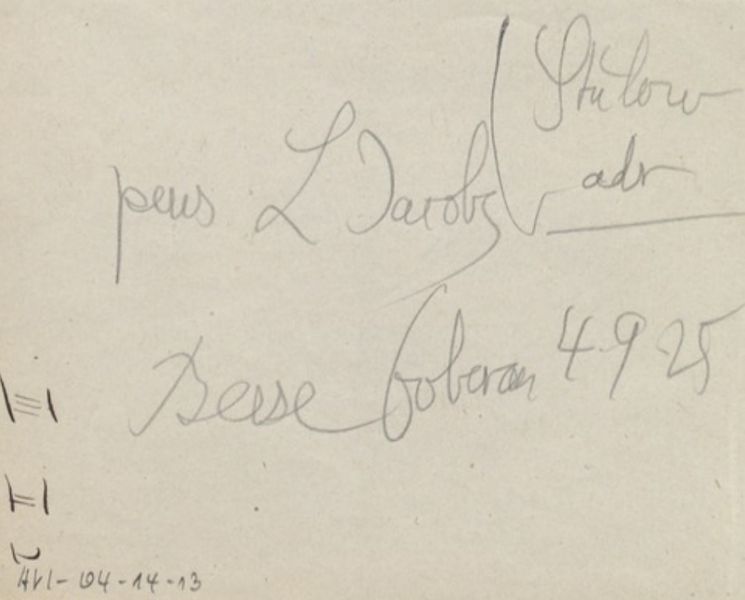 Stülow
pens L Jacobs adr
Besse Doberan 4 9 25
AVI-04-14-13